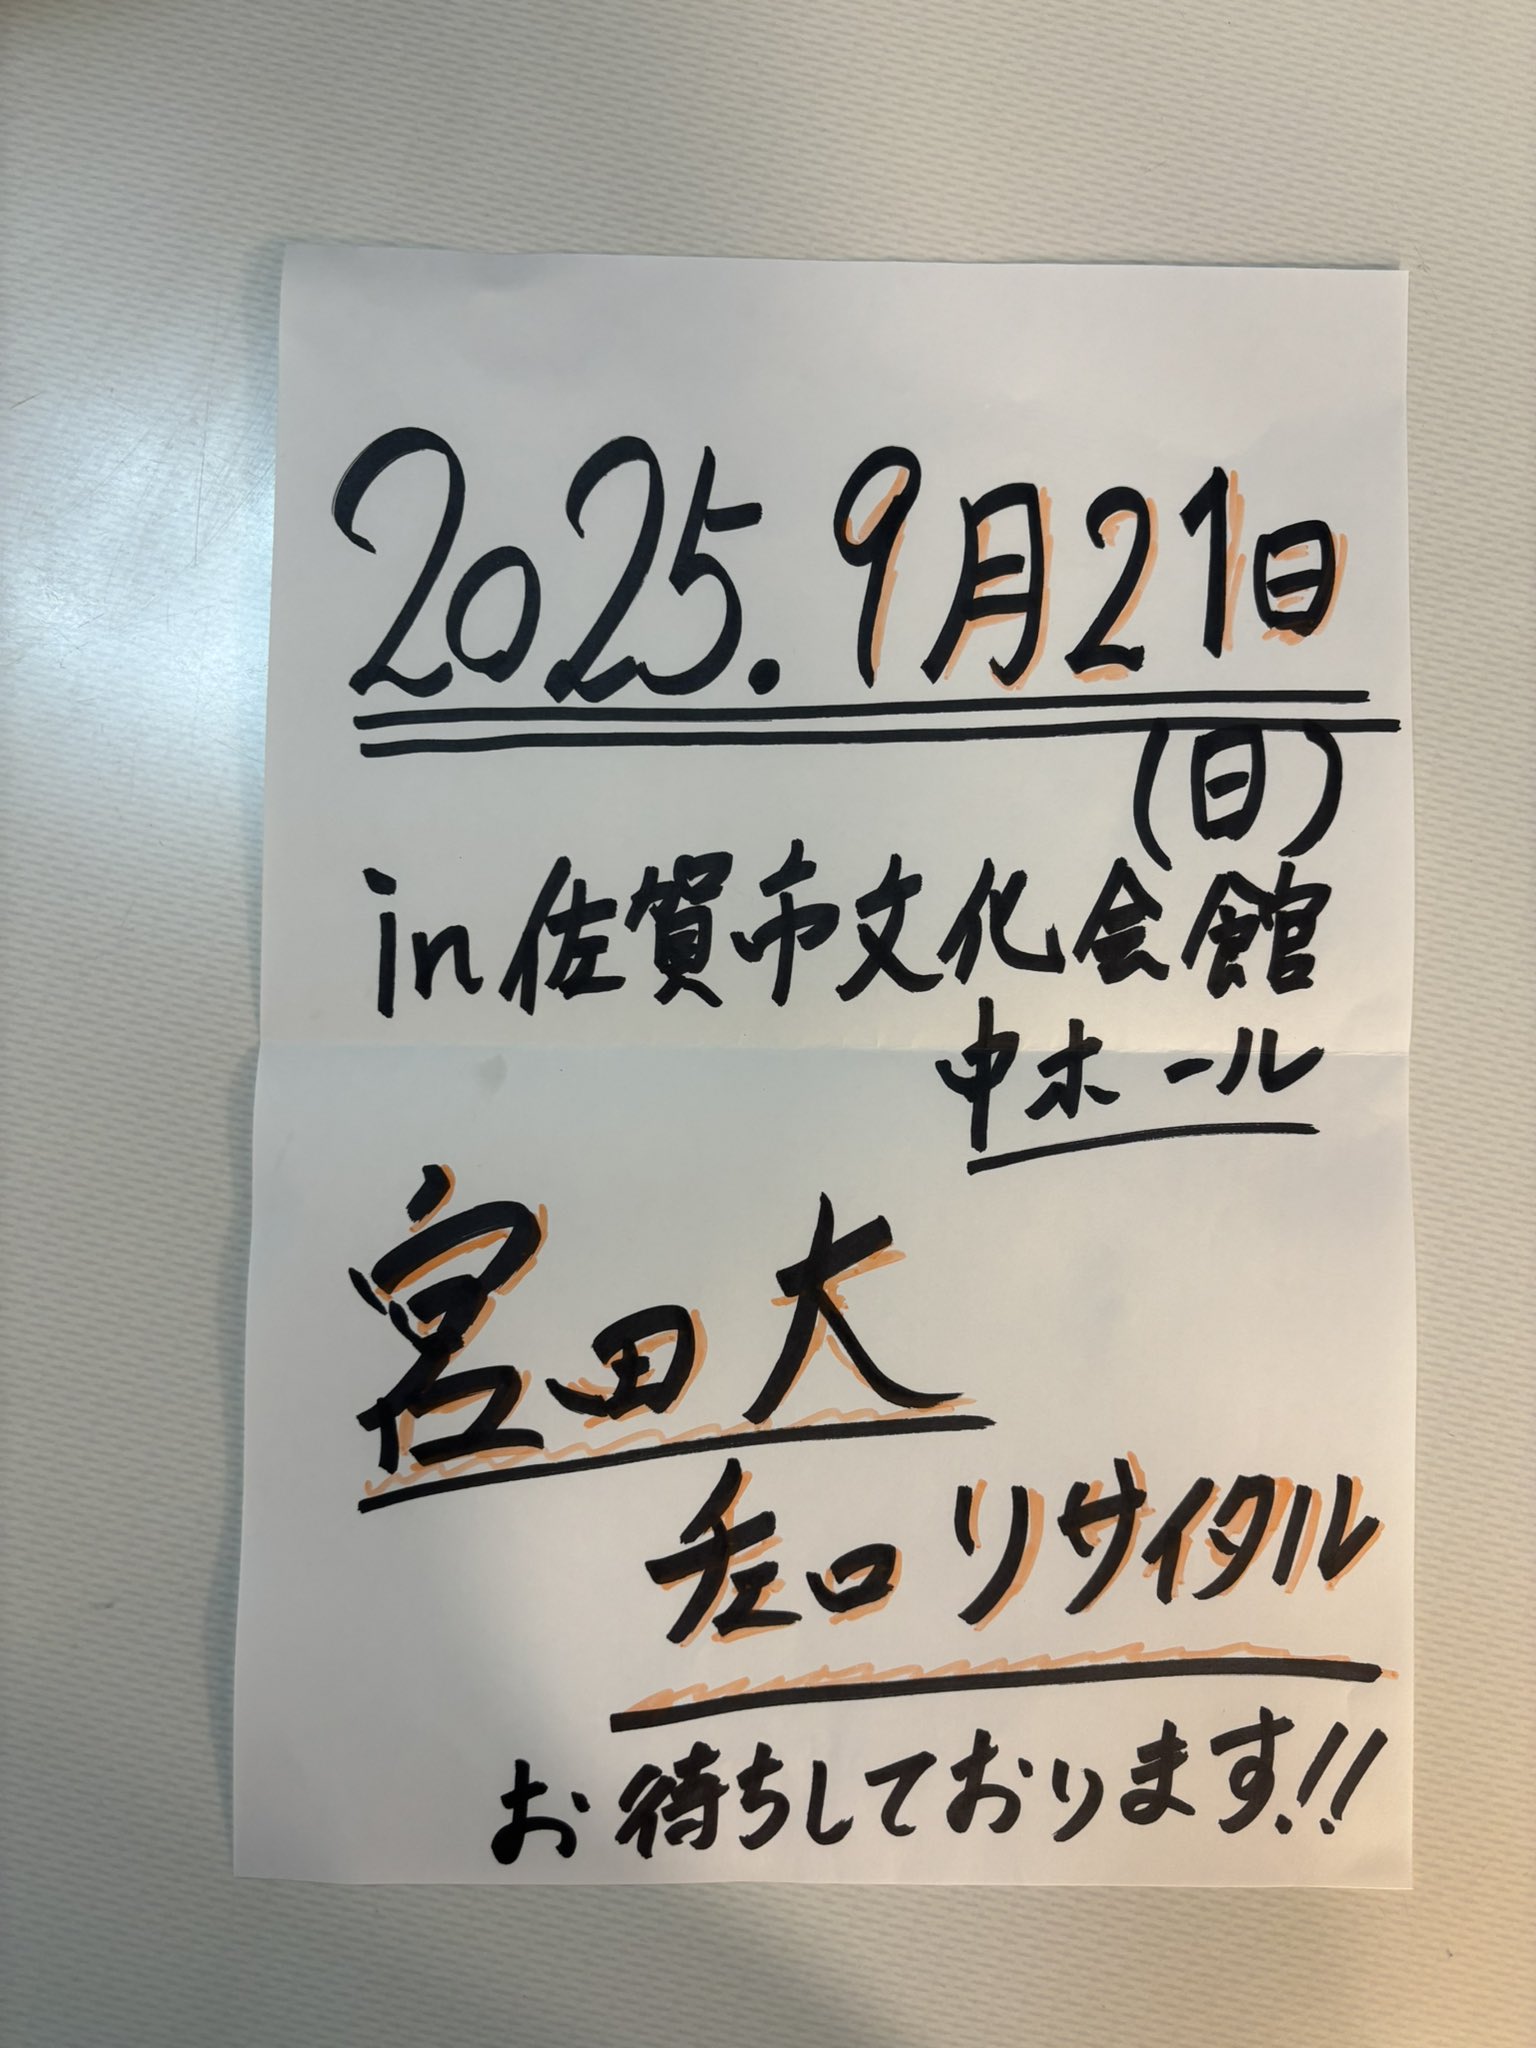 2025.9月21日
(日)
in佐賀市文化会館
中ホール
宮田大
チェロリサイタル
お待ちしております!!